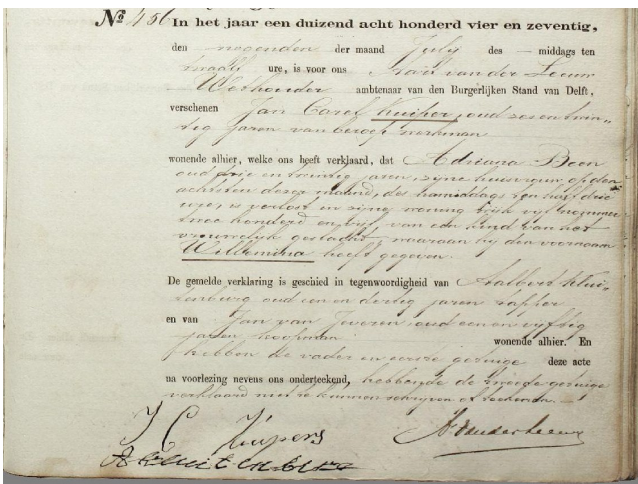 No 456 In het jaar een duizend acht honderd vier en zeventig,
den negenden der maand July des — middags ten
twaalf ure, is voor ons van der Leeuw
Wethouder ambtenaar van den Burgerlijken Stand van Delft,
verschenen Jan Carel Kuiper, oud zes en twin-
tig jaren van beroep werkman
wonende alhier, welke ons heeft verklaard, dat Adriana Boon
oud drie en twintig jaren, zijne huisvrouw, op den
achtsten dezer maand, des namiddags ten half drie
ure, is verlost in zijne woning wijk vijf nommer
twee honderd en vijf, van een kind van het
vrouwelijk geslacht, waaraan hij den voornaam
Willemina heeft gegeven.
De gemelde verklaring is geschied in tegenwoordigheid van Aalbert Klui-
tenburg oud een en dertig jaren sapper
en van Jan van Joveren, oud een en vijftig
jaren koopman wonende alhier. En
hebben de vader en eerste getuige deze acte
na voorlezing nevens ons onderteekend, hebbende de tweede getuige
verklaard niet te kunnen schrijven of teekenen. —
J C Kuipers
A Kluitenburg
vanderLeeuw